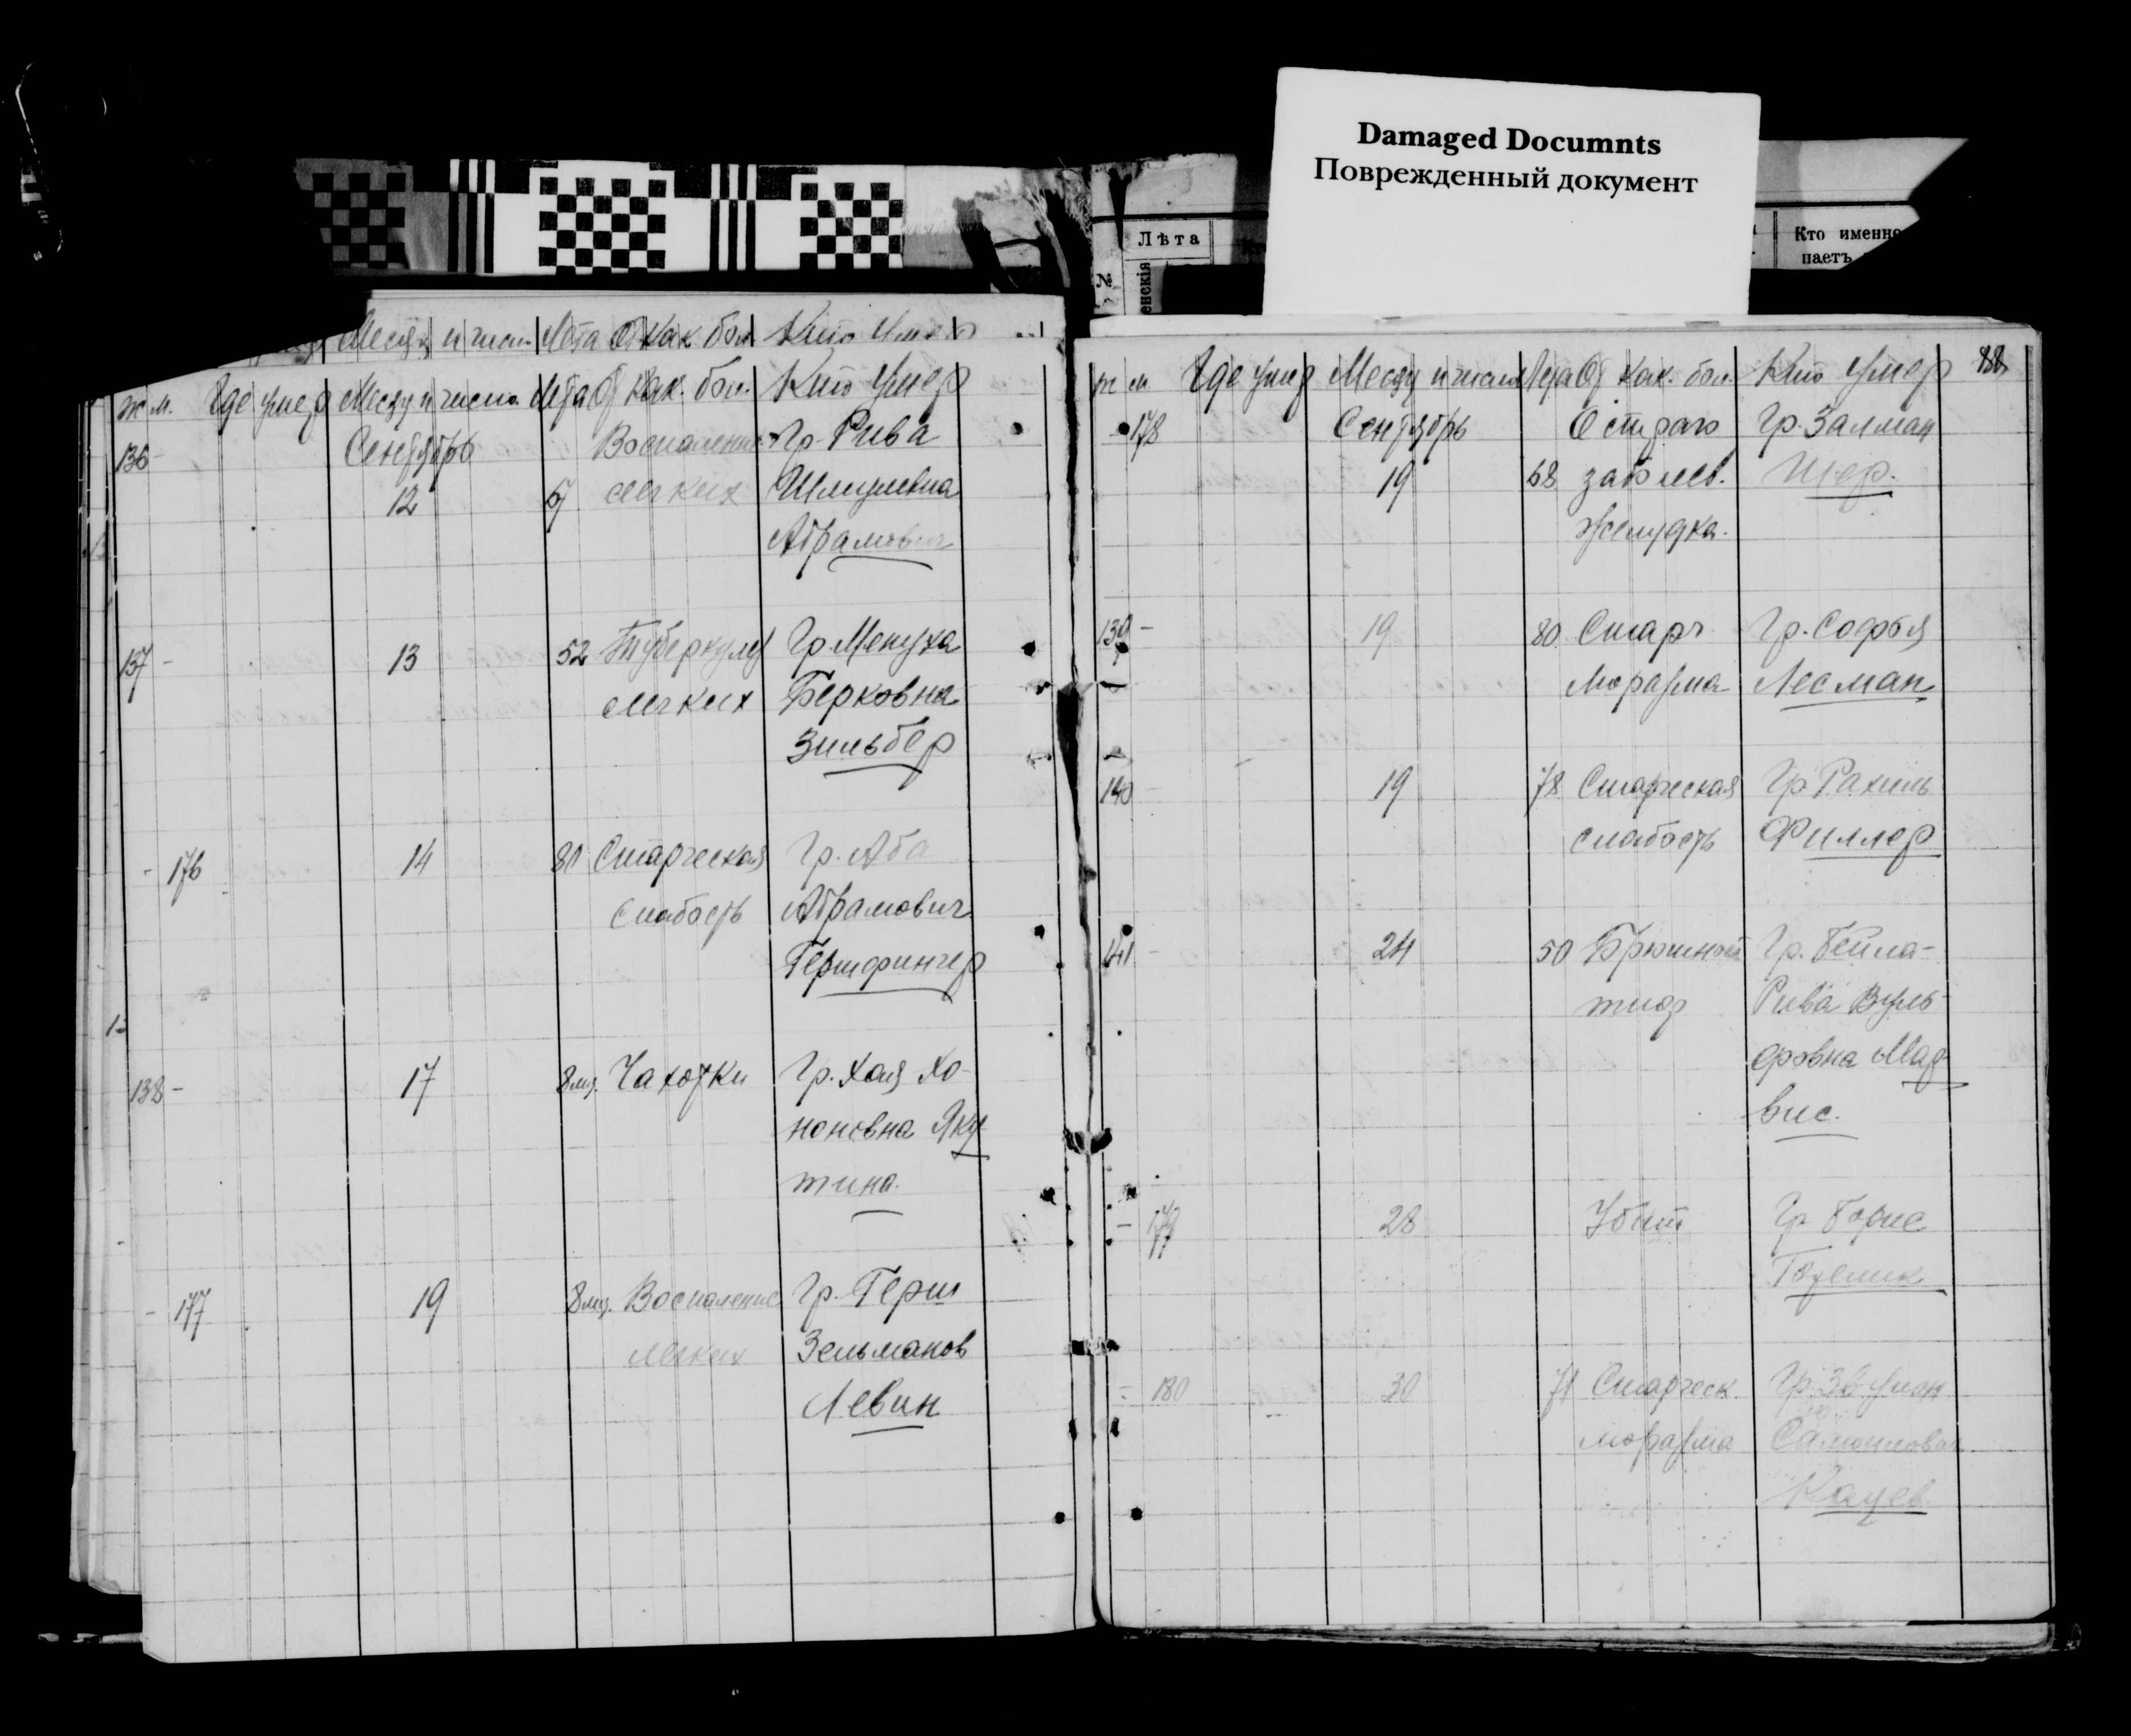 Damaged Documnts
Поврежденный документ
Лѣта
Кто именно
паетъ
№
енскія
Месяц и число Лета От как. бол. Кто Умер
ж м. Где умер Месяц и число. Лета От как. бол. Кто Умер
136 Сентябрь Воспаление Гр. Рива
12 легких Шлиомовна
Абрамович
137 - 13 52 Туберкулез Гр Менуха
легких Берковна
Зильбер
- 176 14 80 Старческая Гр. Аба
слабость Абрамович
Гершфингер
138 - 17 8 мц. Чахотки Гр. Хая Хо-
ноновна Яку
тина.
- 177 19 8 мц. Воспаление Гр. Герш
легких Зельманов
Левин
88
ж м. Где умер Месяц и число Лета От как. бол. Кто Умер
- 178 Сентябрь Остраго Гр. Залман
19 68 заболев. Шер.
желудка.
139 - 19 80 Старч Гр. Софья
моразма Лесман
140 - 19 78 Старческая Гр Рахиль
слабость Филлер
141 - 24 50 Брюшной Гр. Бейла-
тиф Рива Вуль
фовна Мад
вис.
- 179 28 Убит Гр Борис
Горелик
- 180 30 71 Старческ. Гр.
моразма Самойлович
Кацев